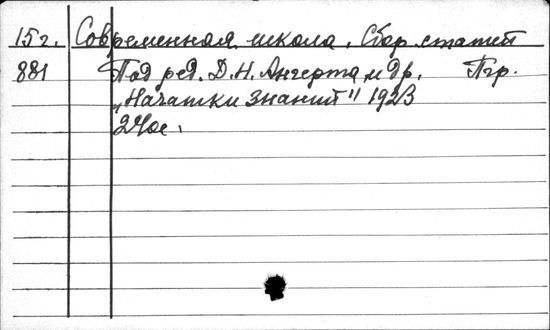 15г. Современная школа. Сбор. статей
881 Под ред. Д. Н. Ангерта и др. Пгр.
„Начатки знаний" 1923
240с.